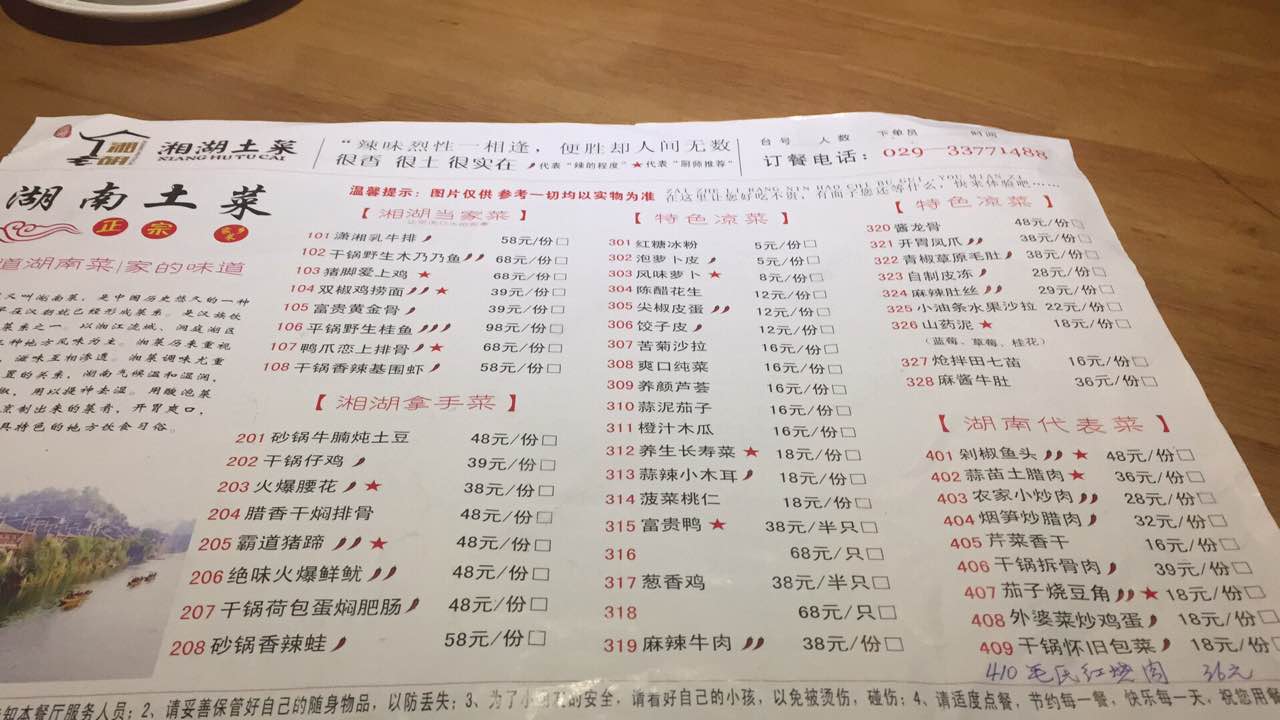 湘湖土菜
XIANGHUTUCAI
“辣味烈性一相逢，便胜却人间无数”
很香 很土 很实在 代表“辣的程度”★代表“厨师推荐”
台号 人数 下单员 时间
订餐电话：029-33771488
湖南土菜
正宗
道湖南菜/家的味道
又叫湖南菜，是中国历史悠久的一种
早在汉朝就已经形成菜系。是汉族饮
菜系之一。以湘江流域、洞庭湖区
三种地方风味为主。湘菜历来重视
，滋味互相渗透。湘菜调味尤重
置的关系，湖南气候温和湿润，
椒，用以提神去湿。用酸泡菜
烹制出来的菜肴，开胃爽口，
具特色的地方饮食习俗。
温馨提示：图片仅供 参考一切均以实物为准
在这里让您好吃不贵，有面子您还等什么，快来体验吧……
【湘湖当家菜】
101 潇湘乳牛排 58元/份□
102 干锅野生木乃乃鱼 68元/份□
103 猪脚爱上鸡 ★ 68元/份□
104 双椒鸡捞面 ★ 39元/份□
105 富贵黄金骨 39元/份□
106 平锅野生桂鱼 98元/份□
107 鸭爪恋上排骨 ★ 68元/份□
108 干锅香辣基围虾 58元/份□
【湘湖拿手菜】
201 砂锅牛腩炖土豆 48元/份□
202 干锅仔鸡 39元/份□
203 火爆腰花 ★ 38元/份□
204 腊香干焖排骨 48元/份□
205 霸道猪蹄 ★ 48元/份□
206 绝味火爆鲜鱿 48元/份□
207 干锅荷包蛋焖肥肠 48元/份□
208 砂锅香辣蛙 58元/份□
【特色凉菜】
301 红糖冰粉 5元/份□
302 泡萝卜皮 5元/份□
303 风味萝卜 ★ 8元/份□
304 陈醋花生 12元/份□
305 尖椒皮蛋 12元/份□
306 饺子皮 12元/份□
307 苦菊沙拉 16元/份□
308 爽口纯菜 16元/份□
309 养颜芦荟 16元/份□
310 蒜泥茄子 16元/份□
311 橙汁木瓜 16元/份□
312 养生长寿菜 ★ 18元/份□
313 蒜辣小木耳 18元/份□
314 菠菜桃仁 18元/份□
315 富贵鸭 ★ 38元/半只□
316 68元/只□
317 葱香鸡 38元/半只□
318 68元/只□
319 麻辣牛肉 38元/份□
【特色凉菜】
320 酱龙骨 48元/份□
321 开胃凤爪 38元/份□
322 青椒草原毛肚 38元/份□
323 自制皮冻 28元/份□
324 麻辣肚丝 29元/份□
325 小油条水果沙拉 22元/份□
326 山药泥 ★ 18元/份□
（蓝莓、草莓、桂花）
327 炝拌田七苗 16元/份□
328 麻酱牛肚 36元/份□
【湖南代表菜】
401 剁椒鱼头 ★ 48元/份□
402 蒜苗土腊肉 ★ 36元/份□
403 农家小炒肉 28元/份□
404 烟笋炒腊肉 32元/份□
405 芹菜香干 16元/份□
406 干锅拆骨肉 39元/份□
407 茄子烧豆角 ★ 18元/份□
408 外婆菜炒鸡蛋 18元/份□
409 干锅怀旧包菜 18元/份□
410 毛氏红烧肉 36元
知本餐厅服务人员；2、请妥善保管好自己的随身物品，以防丢失；3、为了小朋友的安全，请看好自己的小孩，以免被烫伤，碰伤；4、请适度点餐，节约每一餐，快乐每一天，祝您用餐